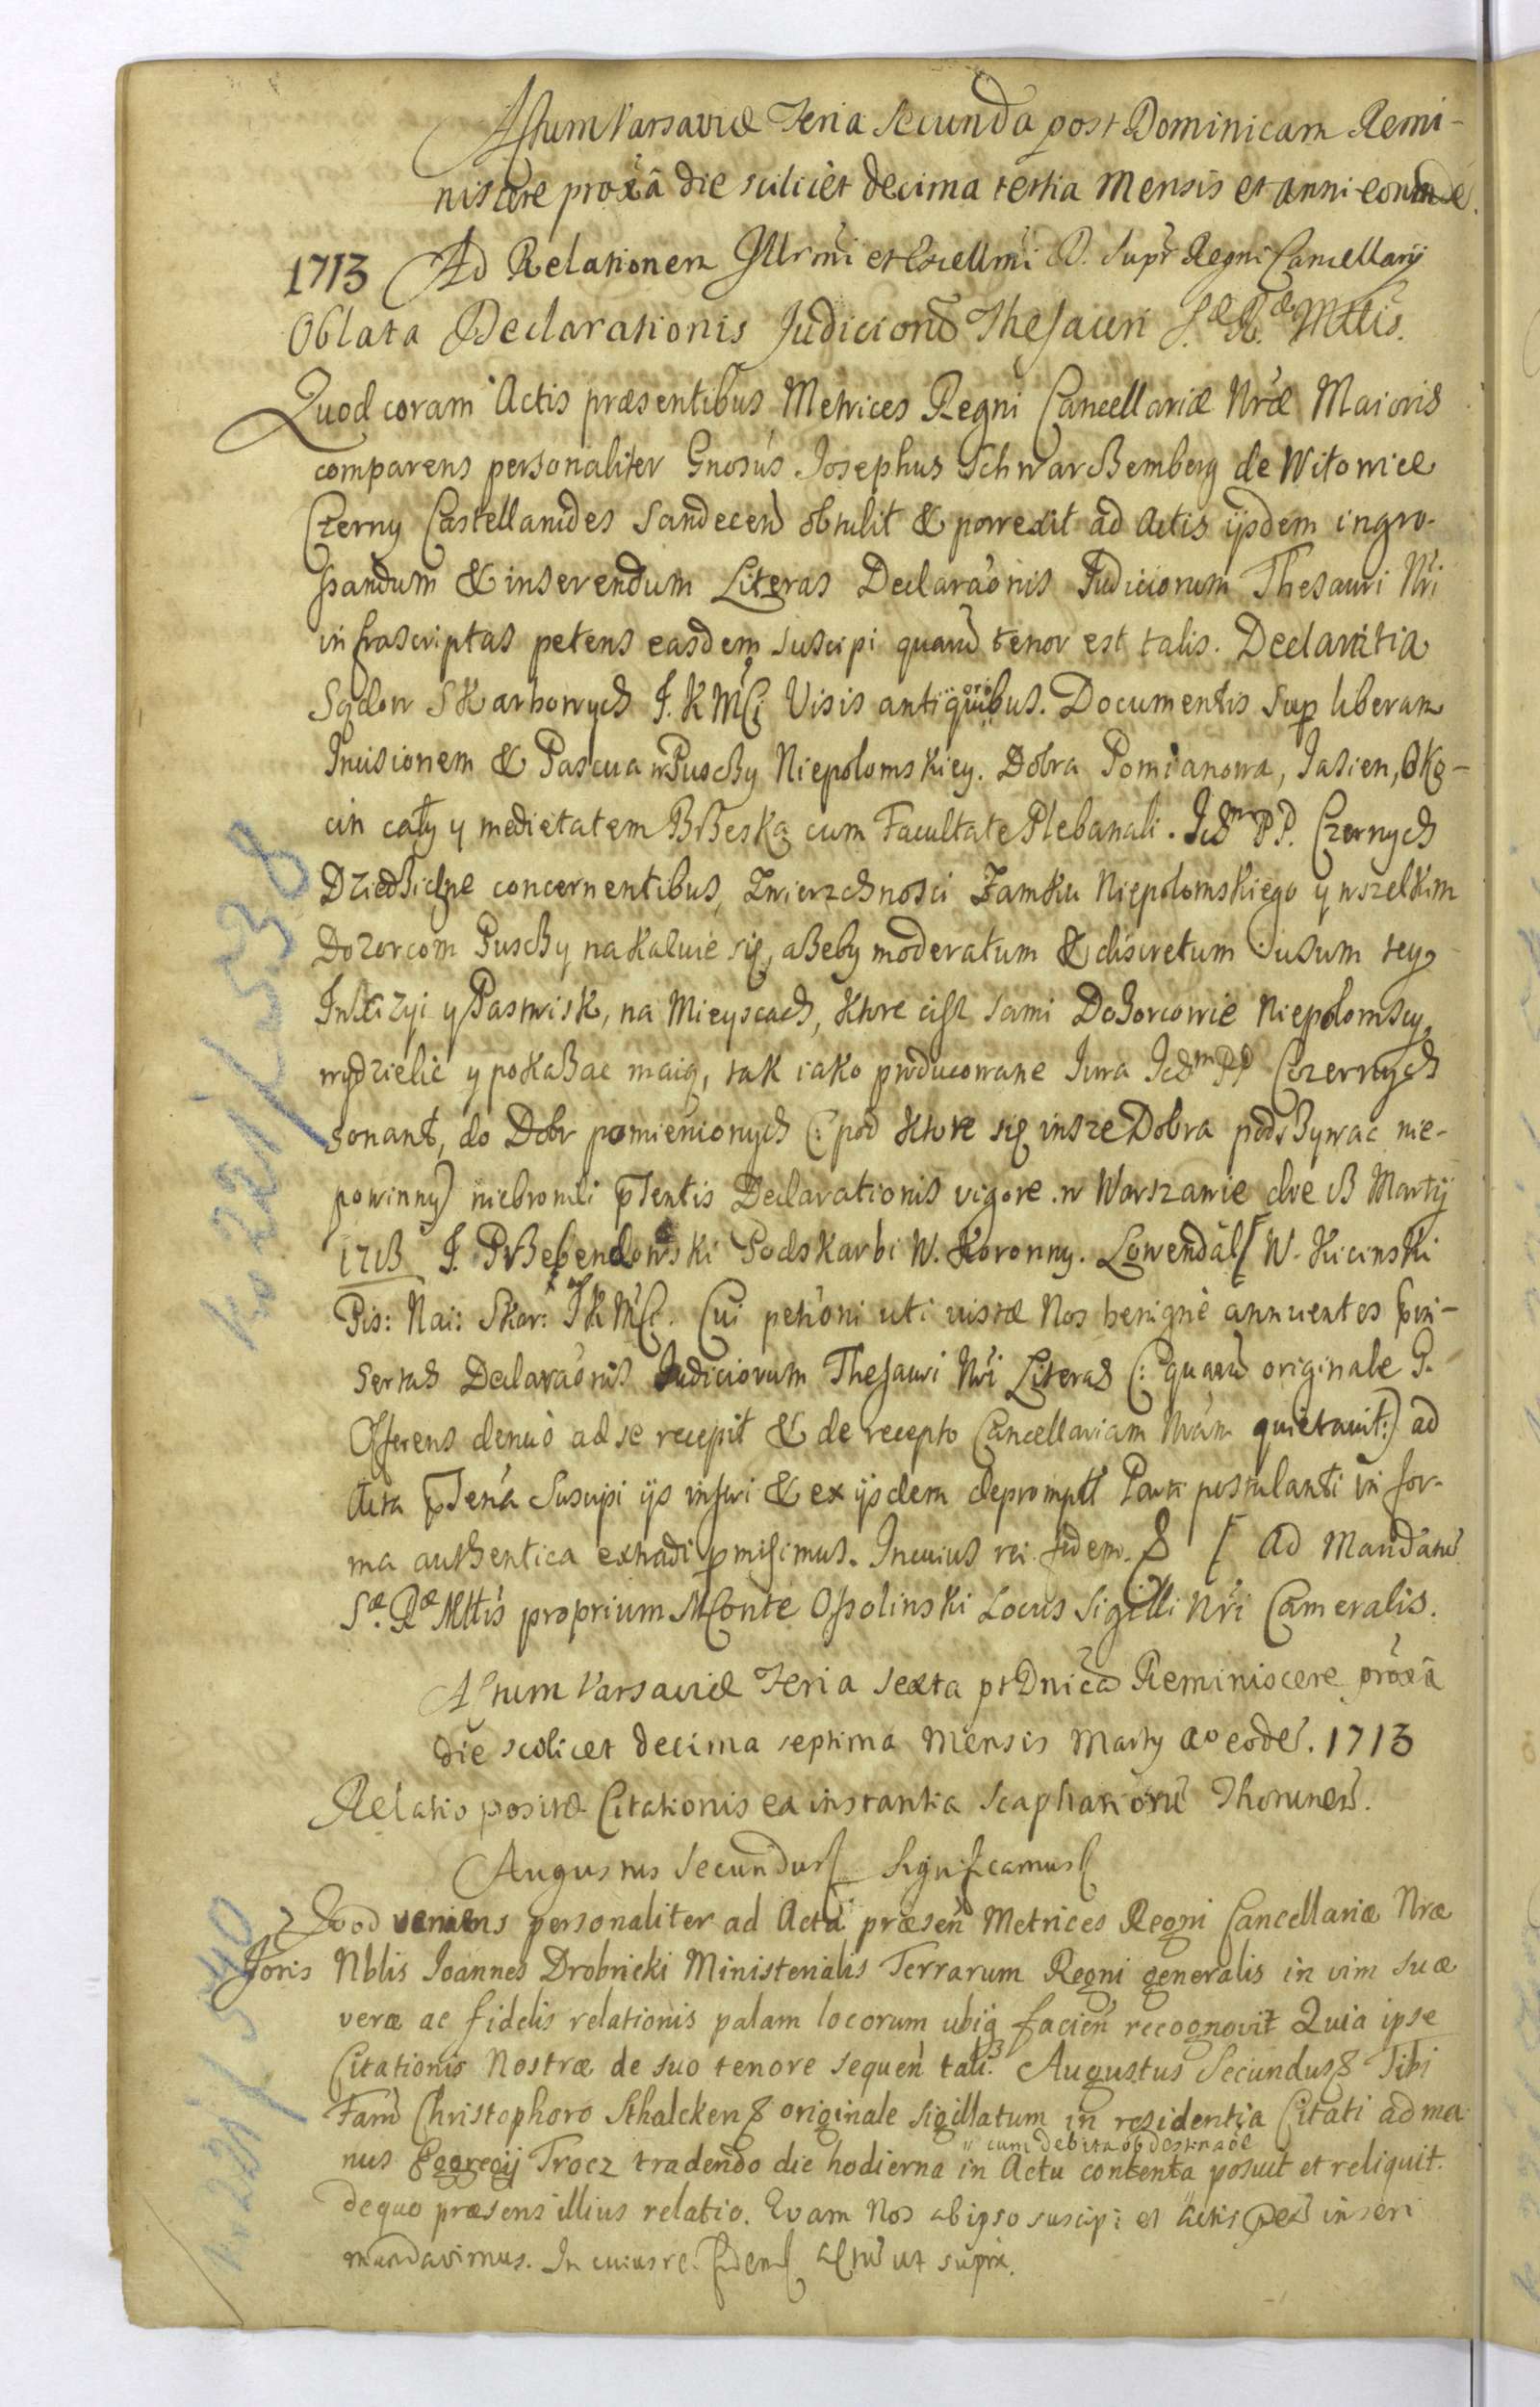 Actum Varsaviæ Feria Secunda post Dominicam Remi-
niscere proxâ die scilicèt decima tertia Mensis et anni eorunde.
1713 Ad Relationem Jllrmi et Excellmi D. Supr Regni Cancellarij
Oblata Declarationis Judiciorũ Thesauri S.æ R.æ Mttis.
Quod coram Actis præsentibus Metrices Regni Cancellariæ Nræ Maioris
comparens personaliter Gnosus Josephus Schwarβemberg de Witowice
Czerny Castellanides Sandecen obtulit & porrexit ad Actis ijsdem ingro-
ssandum & inserendum Literas Declaraõnis Judiciorum Thesauri Nri
infrascriptas petens easdem suscipi quarũ tenor est talis. Declaratia
Sądow Skarbowych J. K Mści Visis antiquioribus. Documentis sup liberam
Incisionem & Pascua w Puscβy Niepolomskiey. Dobra Pomianowa, Jasien, Oko-
cin cały y medietatem Bβeska cum Facultate Plebanali. Ichm PP. Czernych
Dziedβicβne concernentibus, Zwierzchności Zamku Niepolomskiego y wszelkim
Dozorcom Puscβy nakaluie się, aβeby moderatum & discretum usum tey
Incizyi y Pastwisk, na Mieyscach, ktore ciβ sami Doβorcowie Niepolomscy,
wydzielić y pokaβac maią, tak iako producowane Iura Ichm PP Czernych
sonant, do Dobr pomienionych (: pod ktore się insze Dobra podsβywac nie-
powinny) niebronili pntentis Declarationis vigore. w Warszawie die 13 Martij
1713 J. Pβebendowski Podskarbi W. Koronny. Lowendal W. Kicinski
Pis: Nai: Skar: JKMści. Cui petioni uti iustæ Nos benignè annuentes prin-
sertas Declaraõnis Judiciorum Thesauri Nri Literas (: quarũ originale P.
Offerens denuò ad se recepit & de recepto Cancellariam Nram quietavit:) ad
Acta pntena Suscipi ijs inseri & ex ijsdem depromptū Parti postulanti in for-
ma authentica extradi pmisimus. In cuius rei fidem. & Ad Mandatũ
S.æ R.æ Mttis proprium M Conte Ossolinski Locus Sigilli Nri Cameralis.
Actum Varsaviæ Feria Sexta pt Dnicã Reminiscere proxâ
die scilicet decima septima Mensis Martij Ao eode. 1713
Relatio positæ Citationis ex instantia Scaphariorũ Thorunen.
Augustus Secundus Significamus
Quod veniens personaliter ad Acta præsen Metrices Regni Cancellariæ Nræ
Joris Nblis Joannes Drobnicki Ministerialis Terrarum Regni generalis in vim suæ
veræ ac fidelis relationis palam locorum ubiq facien recognovit Quia ipse
Citationis Nostræ de suo tenore sequen tali. Augustus Secundus & Tibi
Famũ Christophoro Sthalcken & originale sigillatum in residentia Citati ad ma-
cum debita obdestinaõe
nus Egregij Trocz tradendo die hodierna in Actu contenta posuit et reliquit.
dequo præsens illius relatio. Quam Nos ab ipso suscipi et actis pñ inseri
mandavimus. In cuius re. fidem Actũ ut supra.